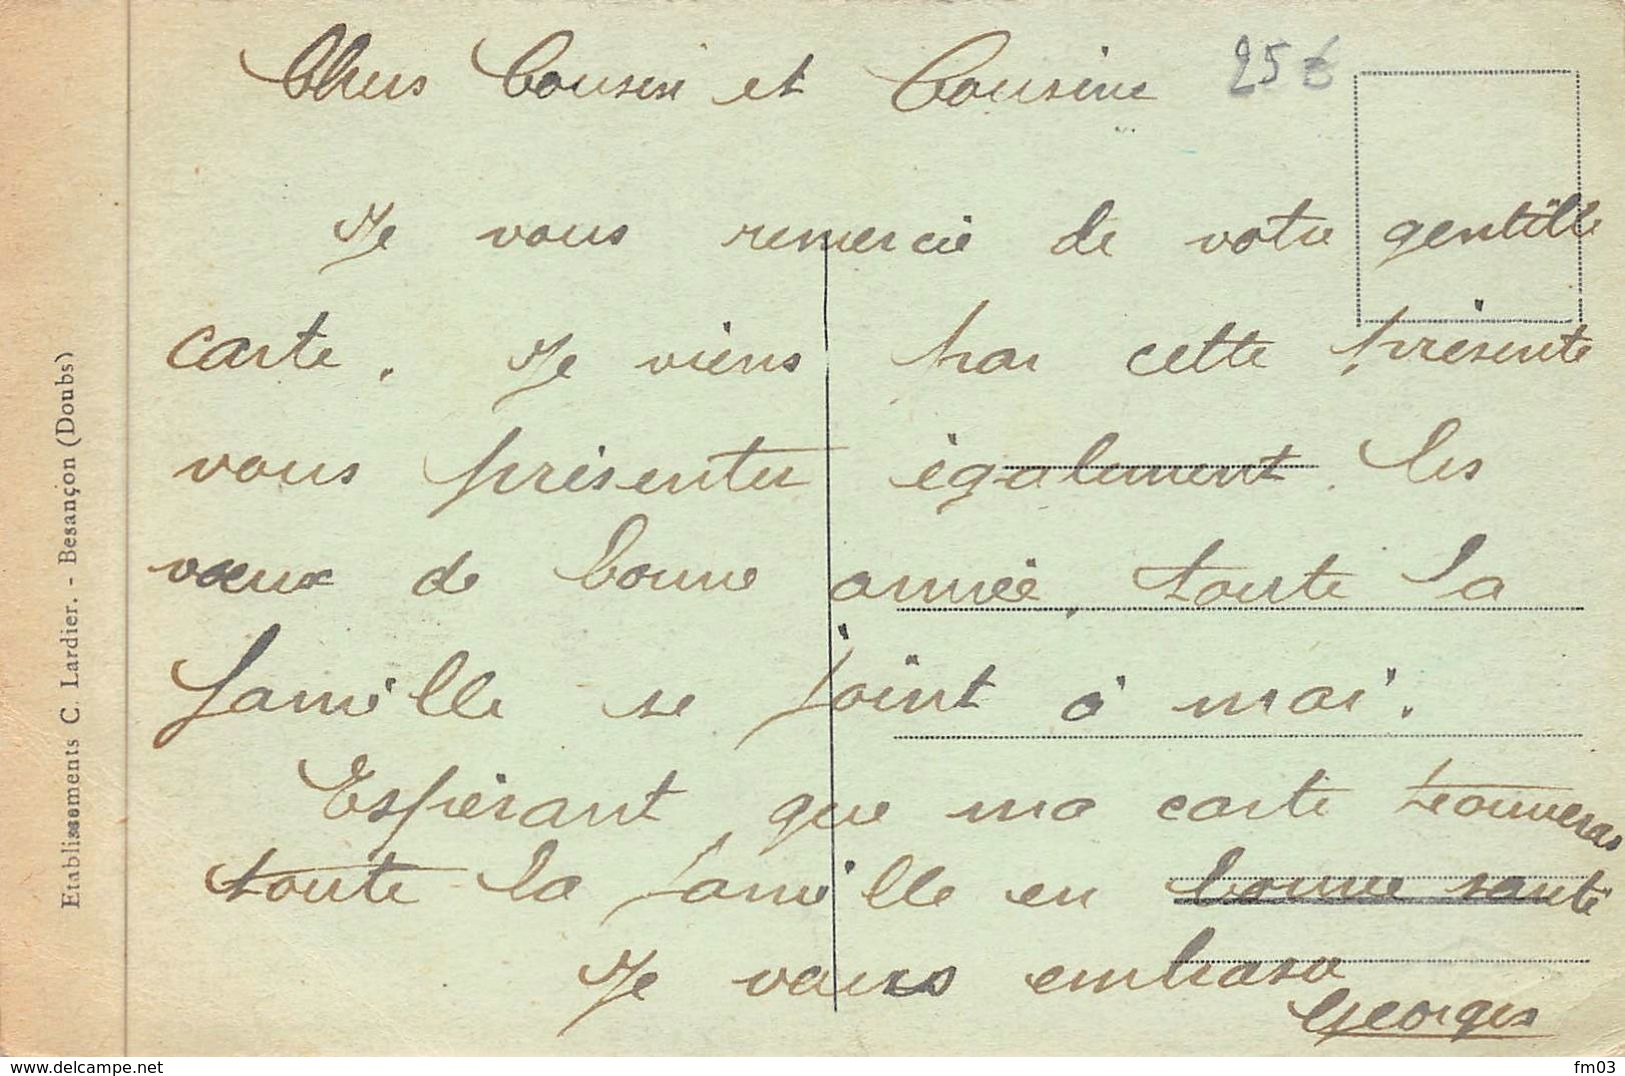 Chers Cousin et Cousine 25€
Je vous remercie de votre gentille
carte. Je viens par cette présente
vous présenter également les
vœux de bonne année, toute la
famille se joint à moi.
Espérant, que ma carte trouveras
toute la famille en bonne santé
Je vous embrase
Georges
Etablissements C. Lardier. - Besançon (Doubs)
www.delcampe.net
fm03